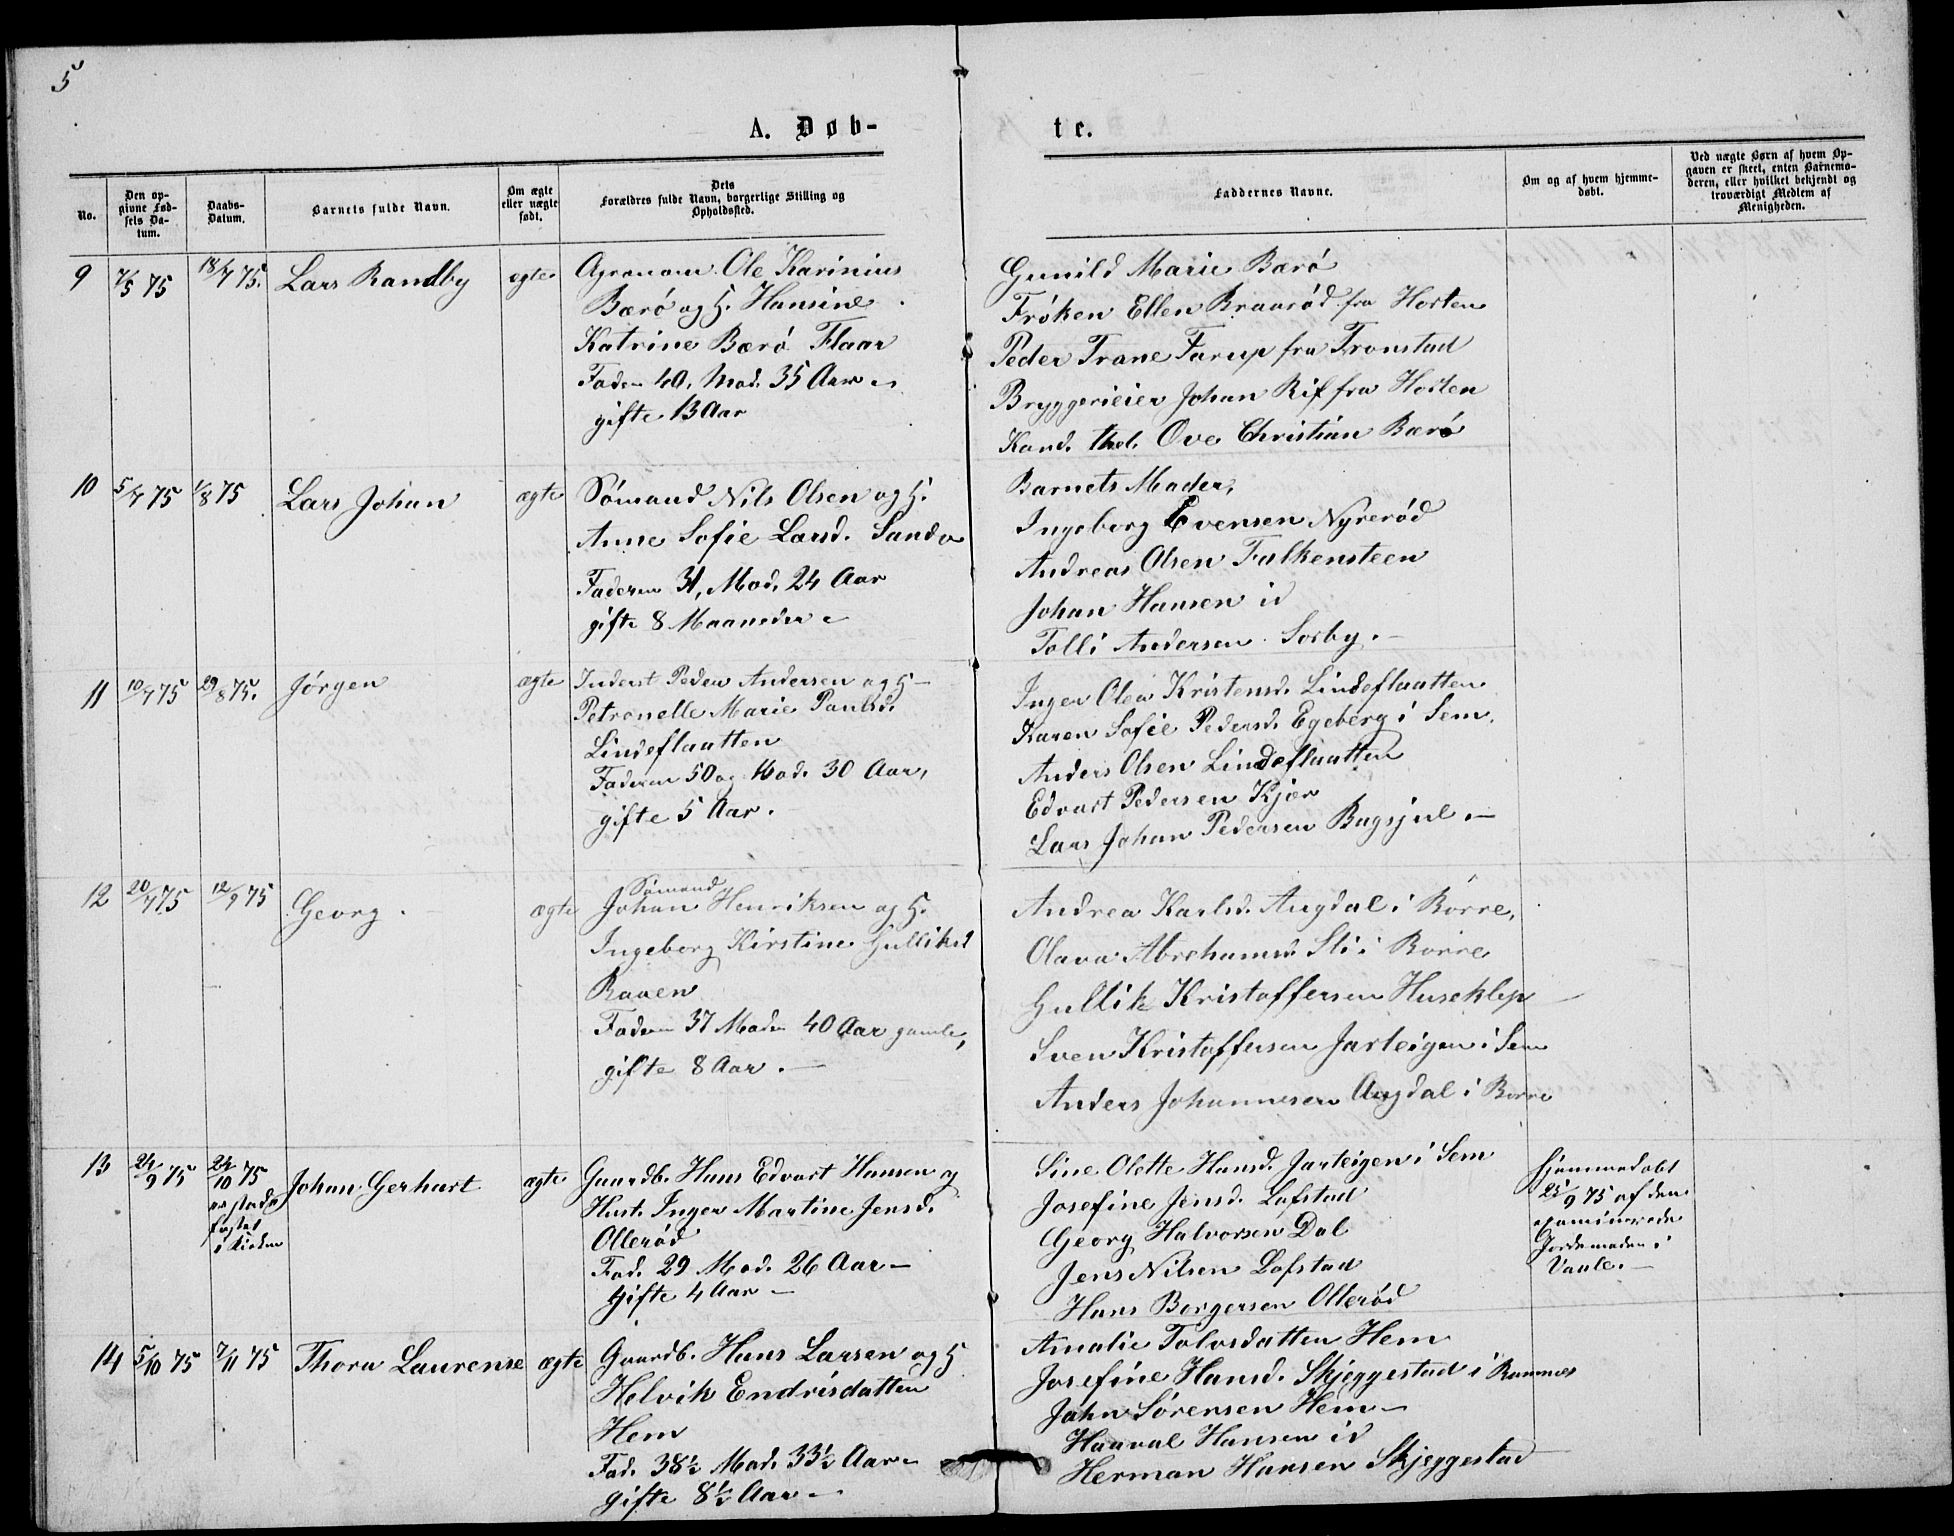 5
A. Døb-
te.
No.
Den op-
givne Fød-
sels Da-
tum.
Daabs-
Datum.
Barnets fulde Navn.
Om ægte
eller uægte
født.
Dets
Forældres fulde Navn, borgerlige Stilling og
Opholdssted.
Faddernes Navne.
Om og af hvem hjemme-
døbt.
Ved uægte Børn af hvem Op-
gaven er skeet, enten Barnemo-
deren, eller hvilket bekjendt og
troværdigt Medlem af
Menigheden.
9 7/5 75 18/7 75. Lars Randby ægte
Agronom Ole Karinius
Bærø og H. Hansine
Katrine Bærø Flaar
Faderen 40, Mod. 35 Aar
gifte 13 Aar
Gunild Marie Bærø
Frøken Ellen Braarød fra Horten
Peder Trane Farup fra Tronstad
Bryggerieier Johan Rif fra Horten
Kand. theol. Ove Christian Bærø
10 5/7 75 1/8 75 Lars Johan ægte
Sømand Nils Olsen og H.
Anne Sofie Larsd. Sanda
Faderen 31, Mod. 24 Aar
gifte 8 Maaneder
Barnets Moder,
Ingeborg Evensen Nyrerød
Andreas Olsen Falkensteen
Johan Hansen id
Tolli Andersen Sørby.
11 10/7 75 29/8 75. Jørgen ægte
Inderst Peder Andersen og H
Petronelle Marie Paulsd.
Lindeflaatten
Faderen 50 og Mod. 30 Aar,
gifte 5 Aar.
Inger Olea Kristensd. Lindeflaatten
Karen Sofie Pedersd. Egeberg i Sem.
Anders Olsen Lindeflaatten
Edvart Pedersen Kjær
Lars Johan Pedersen Bugsjul
12 20/7 75 12/9 75 Georg. ægte
Sømand
Johan Henriksen og H.
Ingeborg Kirstine Gulliksd
Raaen
Faderen 37 Moder 40 Aar gamle,
gifte 8 Aar.
Andrea Karlsd. Augdal i Borre,
Olava Abrahamsd. Sti i Borre
Gullik Kristoffersen Huseklep
Sven Kristoffersen Jarteigen i Sem
Anders Johannesen Augdal i Borre
13 24/9 75 24/10 75 Johan Gerhart ægte
fæstet
i Kirken
Gaardb. Hans Edvart Hansen og
Hust. Inger Martine Jensd.
Ollerød
Fad. 29 Mod. 26 Aar
Gifte 4 Aar
Sine Olette Hansd. Jarteigen i Sem
Josefine Jensd. Lofstad
Georg Halvorsen Dal
Jens Nilsen Lofstad
Hans Borgersen Ollerød
Hjemmedøbt
25/9 75 af den
examinerede
Jordemoder i
Vaale.
14 5/10 75 7/11 75 Thora Laurense ægte
Gaardb. Hans Larsen og H
Helvik Endrisdatter
Hem
Fad. 38½ Mod. 33½ Aar
gifte 8½ Aar
Amalie Tolvsdatten Hem
Josefine Hansd. Skjeggestad i Ramnes
John Sørensen Hem
Haaval Hansen id
Herman Hansen Skjeggestad